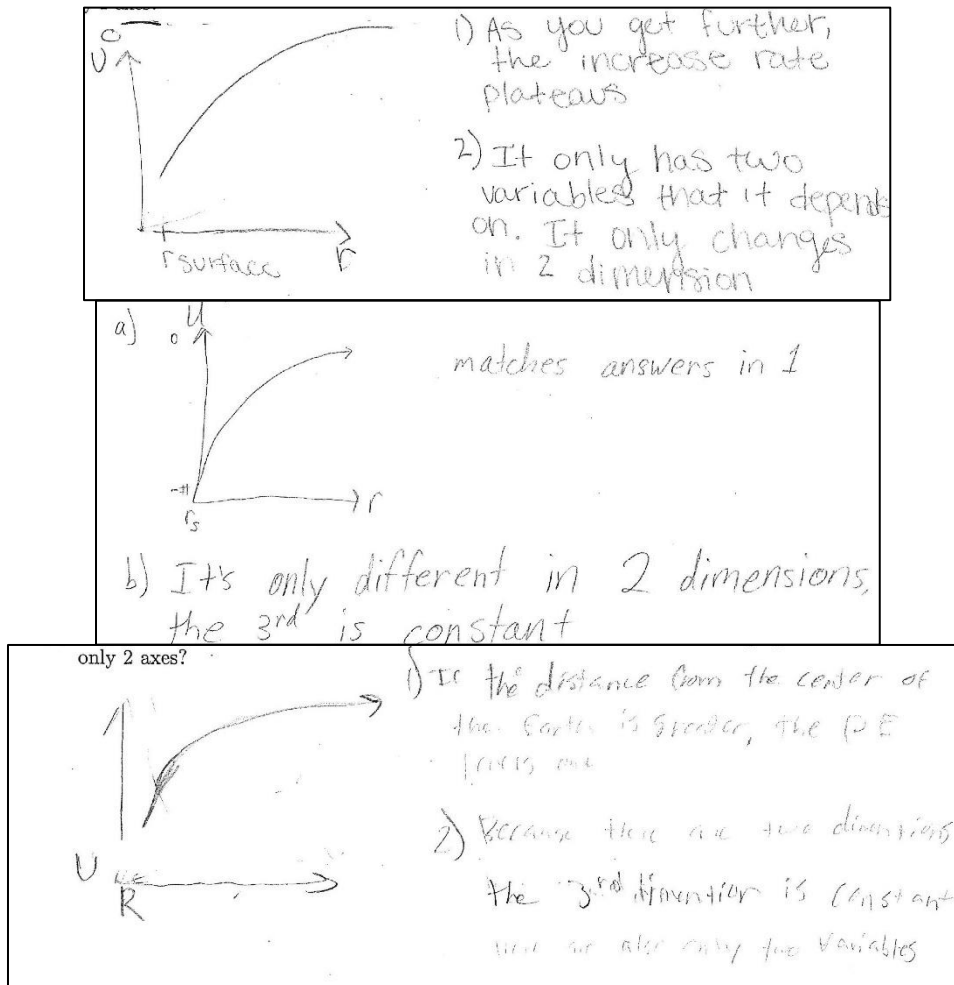 0
U
r surface
r
1) As you get further,
the increase rate
plateaus
2) It only has two
variables that it depends
on. It only changes
in 2 dimension
a)
U
0
r
rs
matches answers in 1
b) It's only different in 2 dimensions,
the 3rd is constant
only 2 axes?
U
R
1) If the distance from the center of
the Earth is greater, the PE
2) Because there are two dimentions
the 3rd dimention is constant
there are also only two variables